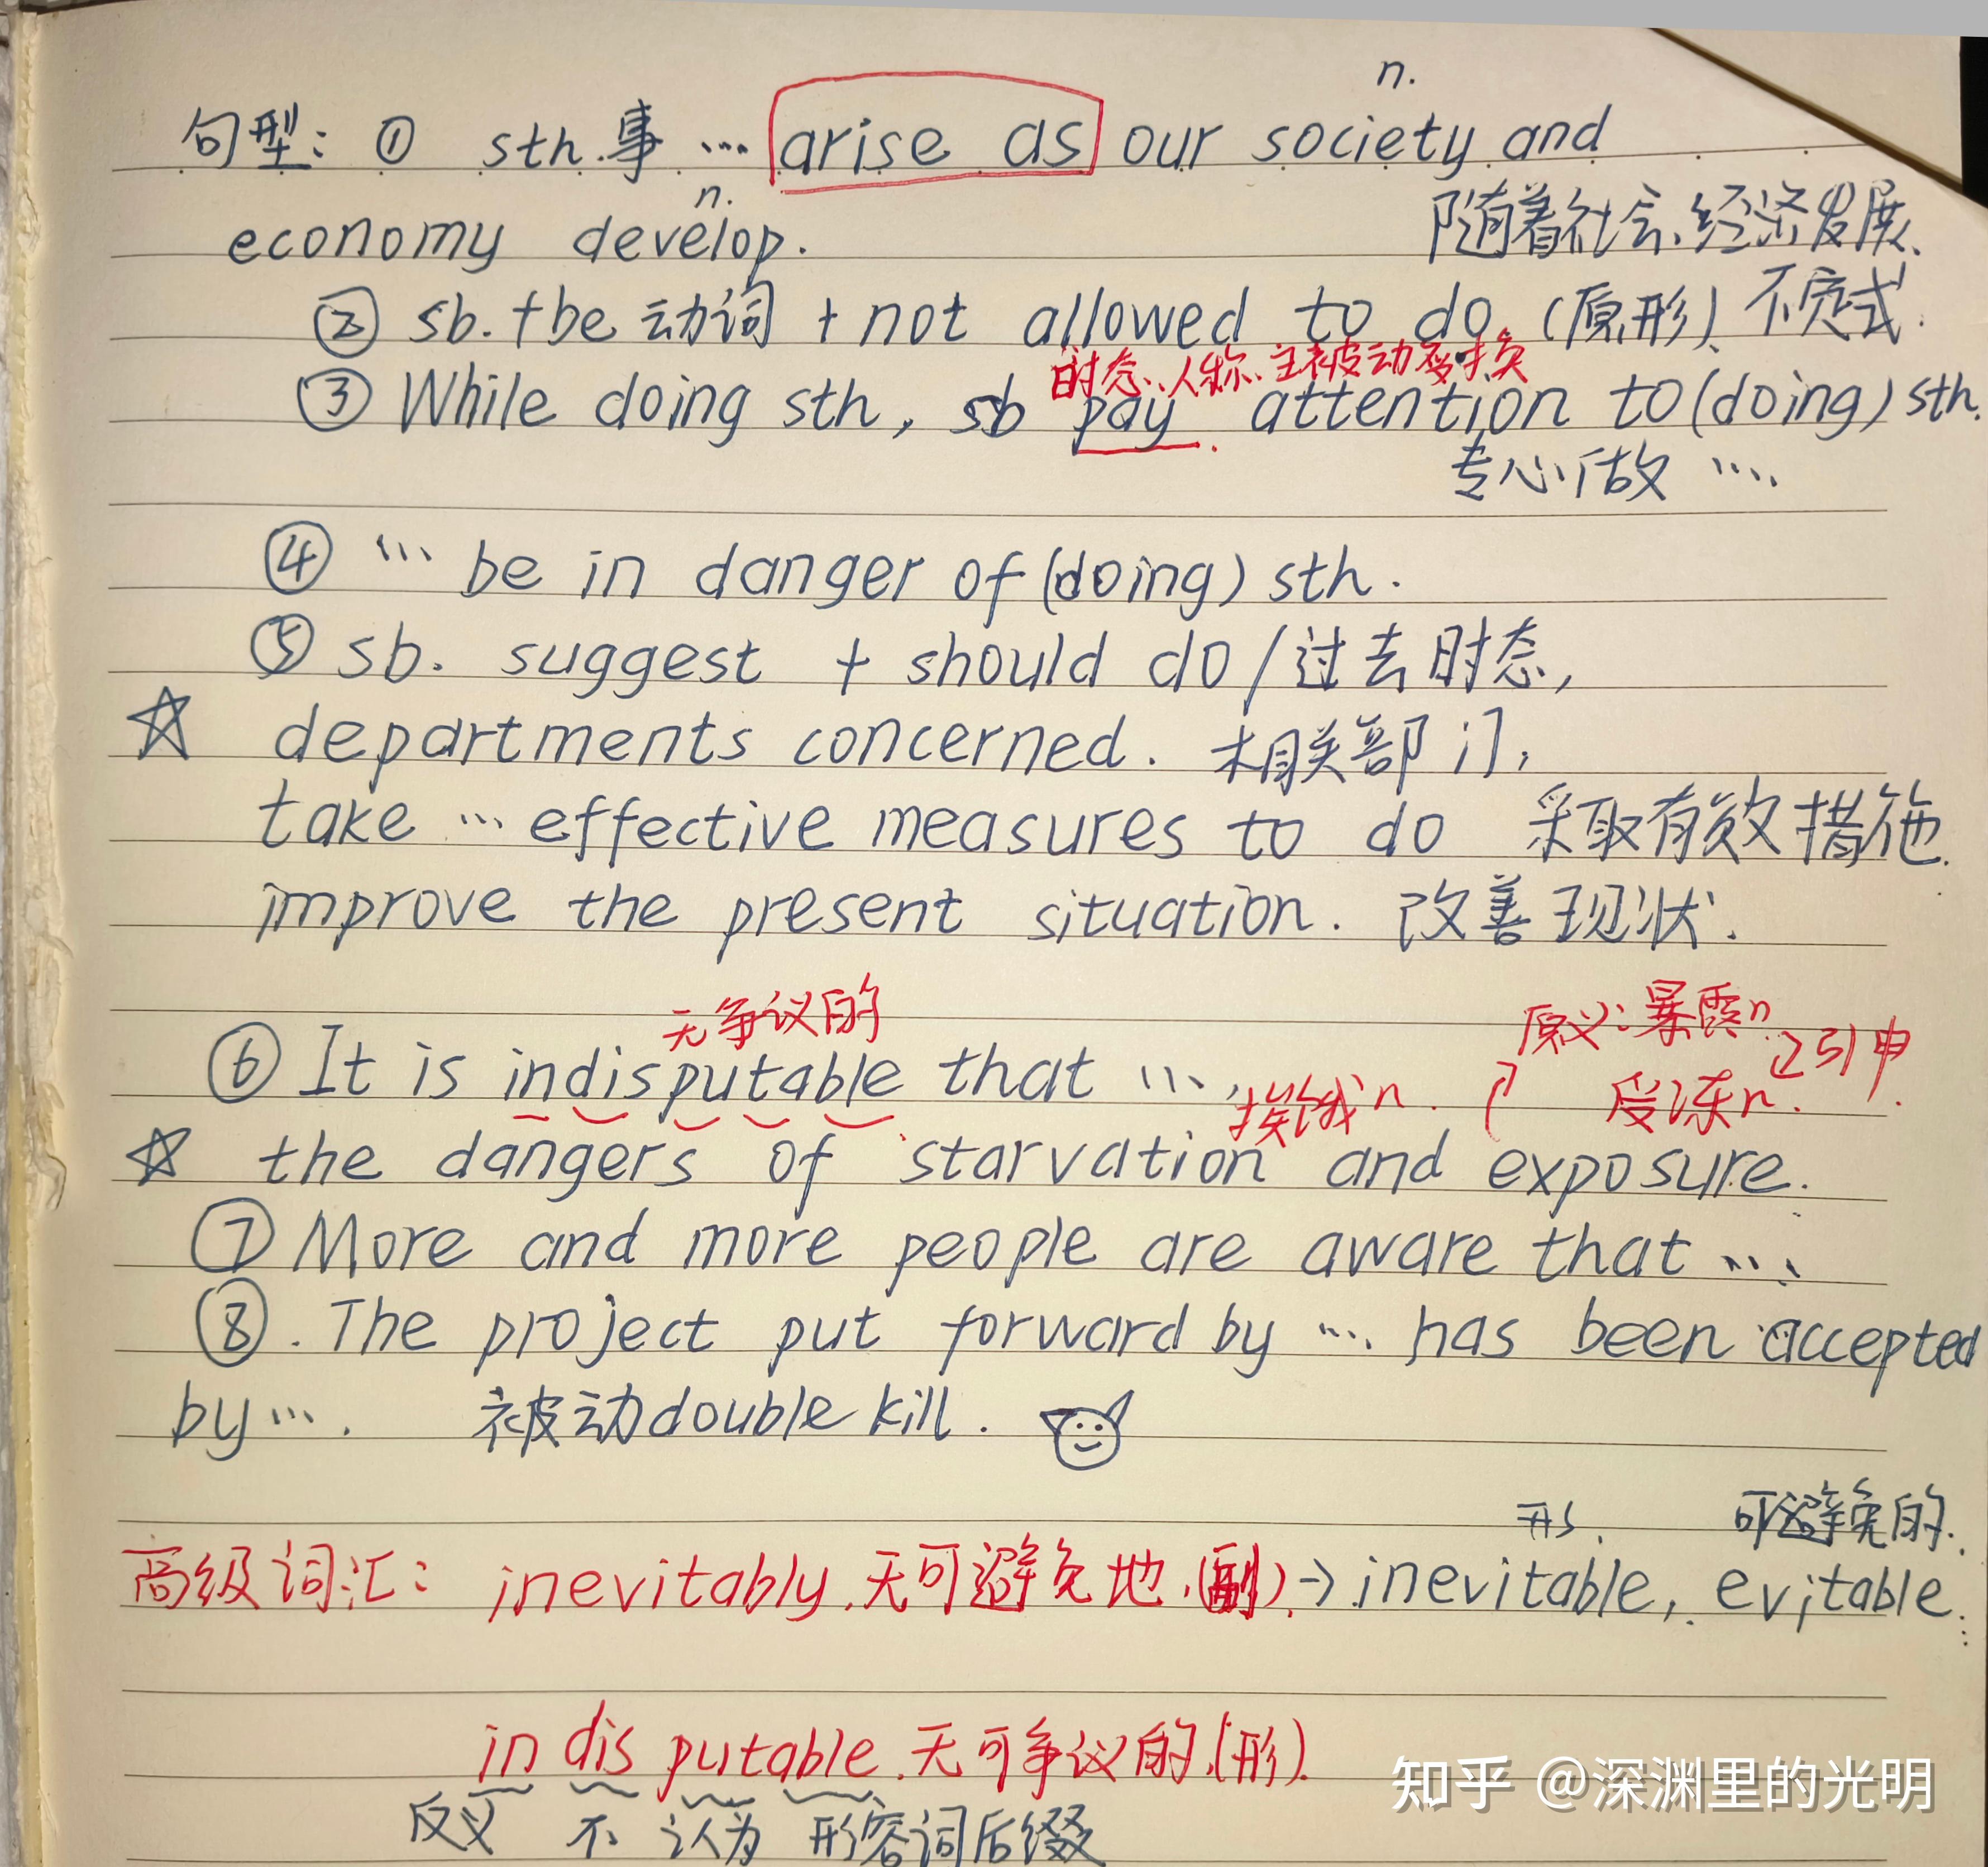 n.
句型: ① sth.事 … arise as our society and
n.
economy develop. 随着社会、经济发展.
② sb.+be 动词 + not allowed to do.(原形). 不定式.
时态、人称、主被动
③ While doing sth, sb pay attention to (doing) sth.
专心做 ….
④ … be in danger of (doing) sth.
⑤ sb. suggest + should do / 过去时态,
☆ departments concerned. 相关部门,
take … effective measures to do 采取有效措施.
improve the present situation. 改善现状.
无争议的 原义:暴露n
⑥ It is indisputable that …, 挨饿n. 受冻n. 引申
☆ the dangers of starvation and exposure.
⑦ More and more people are aware that ….
⑧. The project put forward by … has been accepted
by …. 被动double kill.
形. 可避免的.
高级词汇: inevitably.无可避免地.(副).→inevitable, evitable.
in dis putable.无可争议的.(形).
反义 不 认为 形容词后缀
知乎 @深渊里的光明